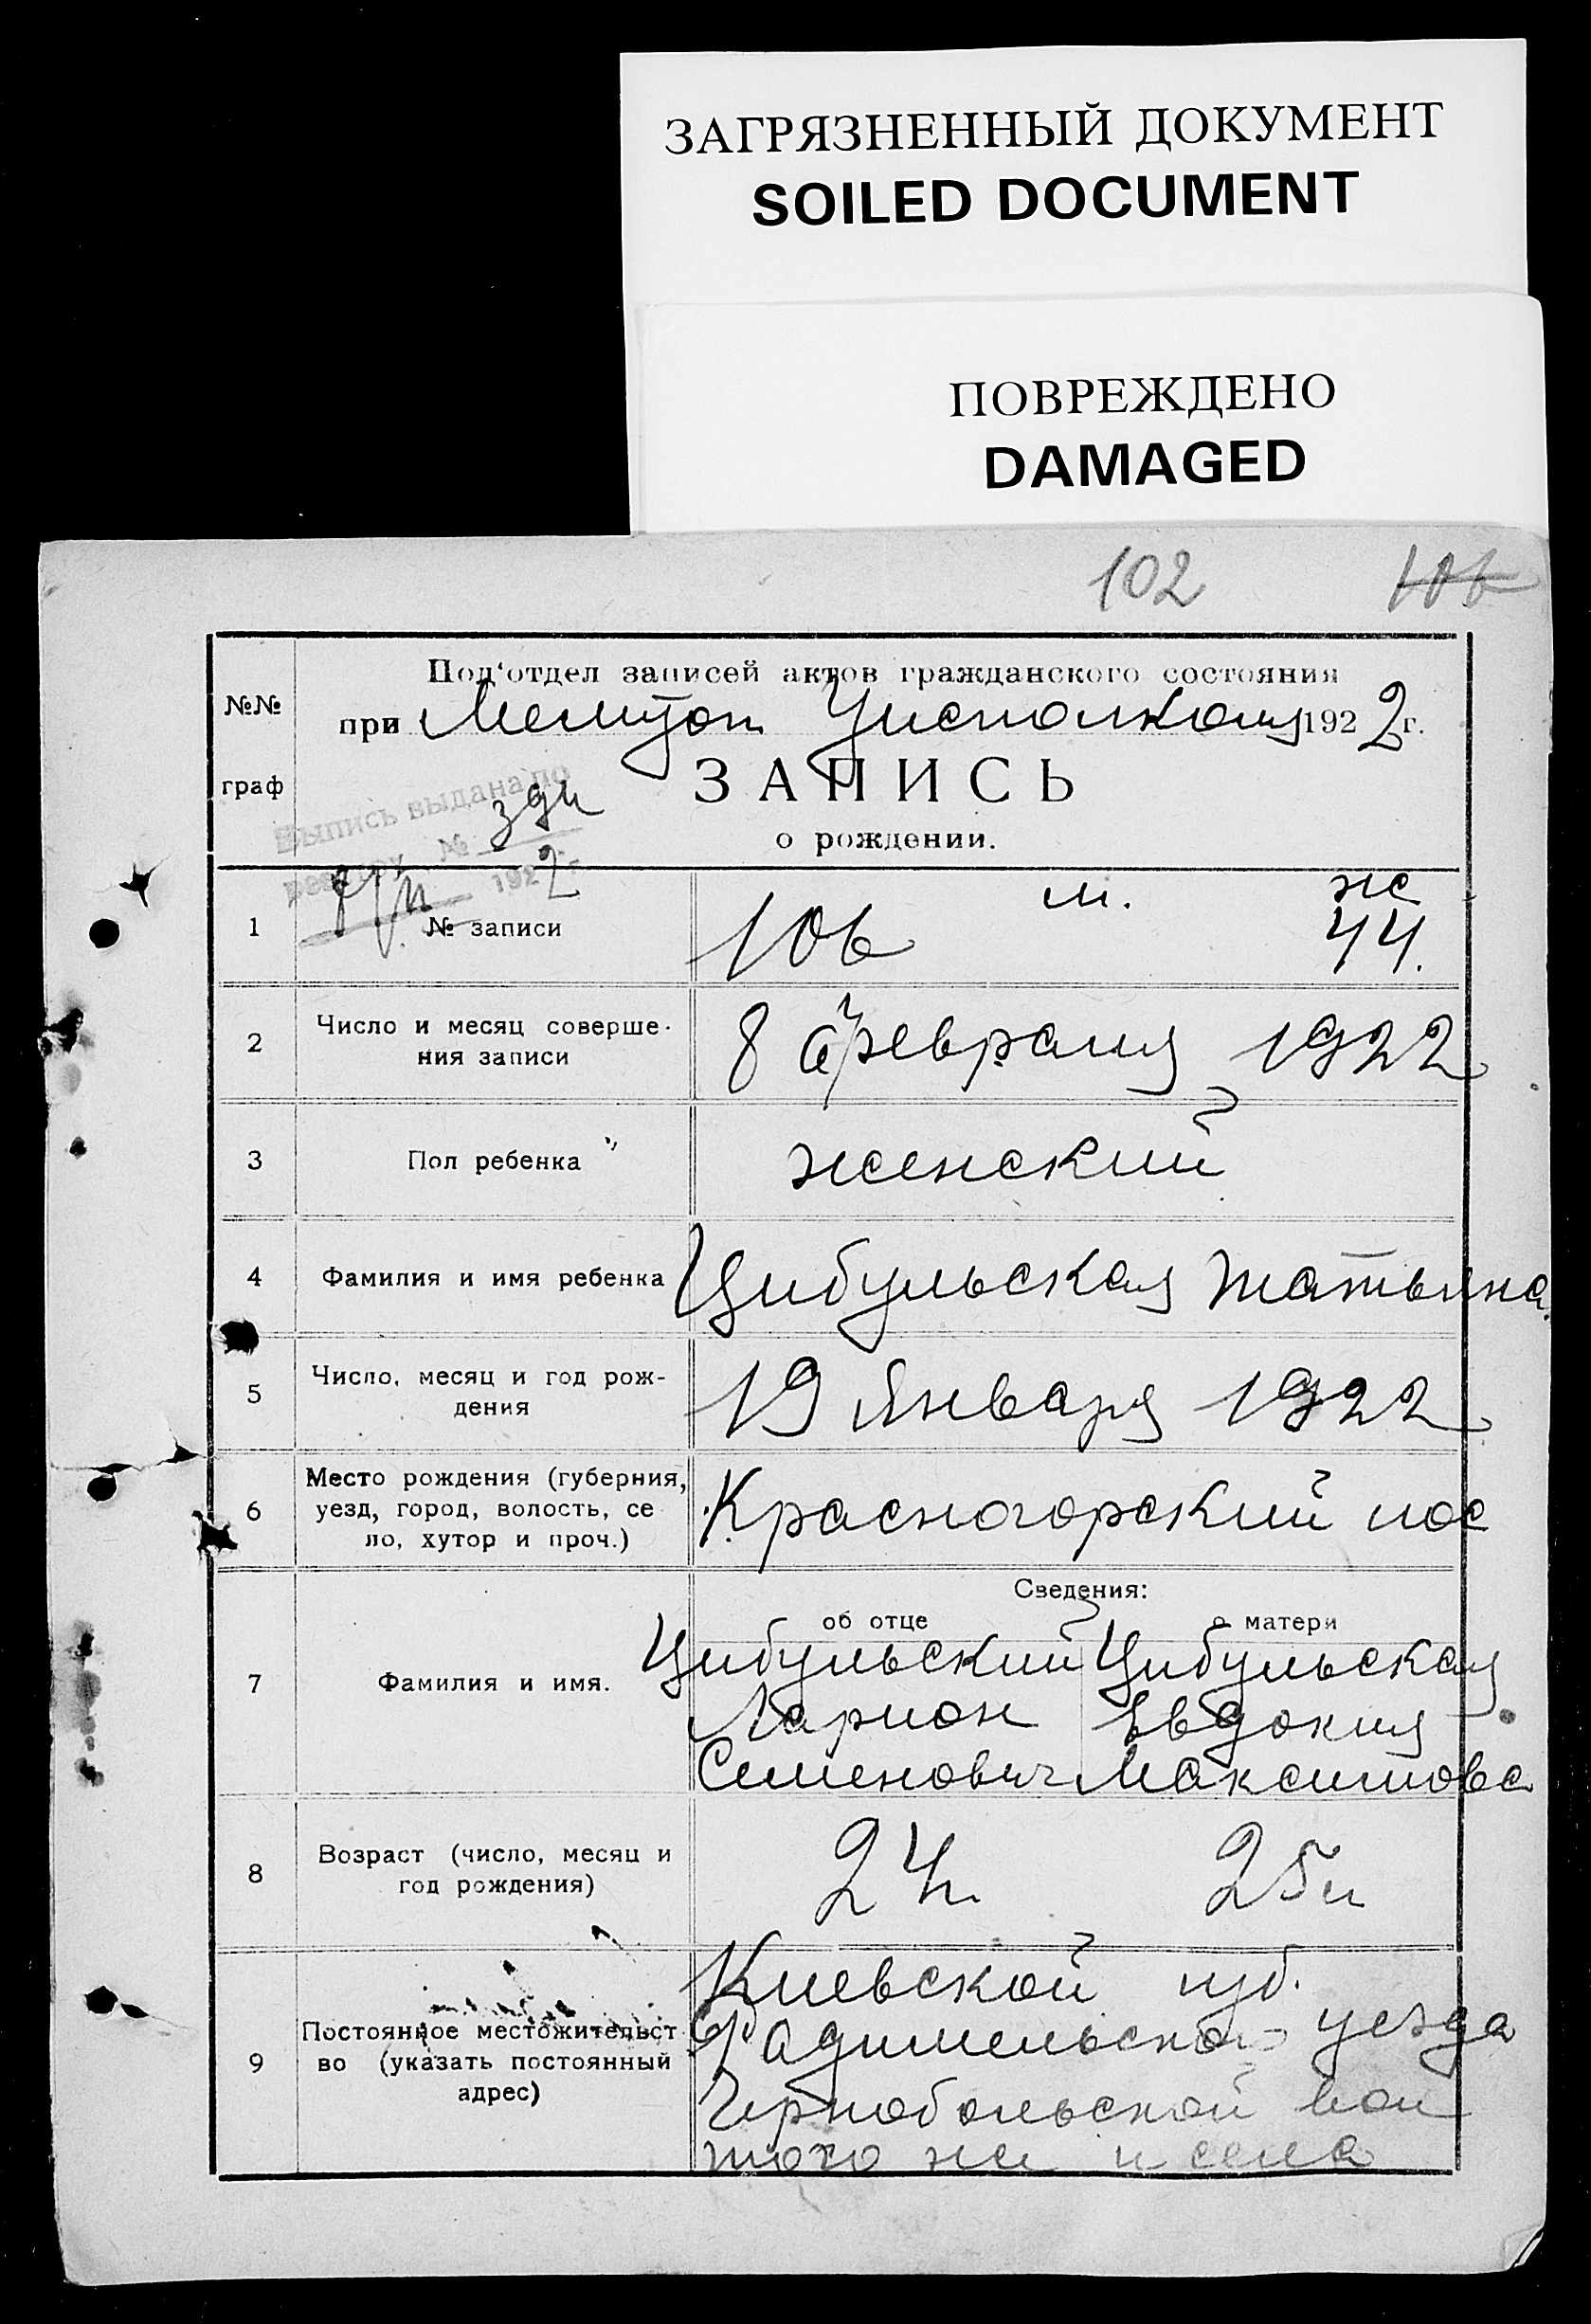 ЗАГРЯЗНЕННЫЙ ДОКУМЕНТ
SOILED DOCUMENT
ПОВРЕЖДЕНО
DAMAGED
102 106
№№
граф
Под'отдел записей актов гражданского состояния
при Уисполкома 1922 г.
ЗАПИСЬ
о рождении.
Выпись выдана по
реестру №
1922 г.
м. ж
1 № записи 106 44.
2 Число и месяц соверше-
ния записи 8 февраля 1922
3 Пол ребенка женский
4 Фамилия и имя ребенка Цибульская Татьяна
5 Число, месяц и год рож-
дения 19 января 1922
6 Место рождения (губерния,
уезд, город, волость, се
ло, хутор и проч.) Красногорский пос
Сведения:
об отце о матери
7 Фамилия и имя. Цибульский Цибульская
Ларион Евдокия
Семенович Максимова
8 Возраст (число, месяц и
год рождения) 24 л 25 л
9 Постоянное местожительст
во (указать постоянный
адрес)
Киевской губ.
Радимельско уезда
Чернобольской вол
того же и села